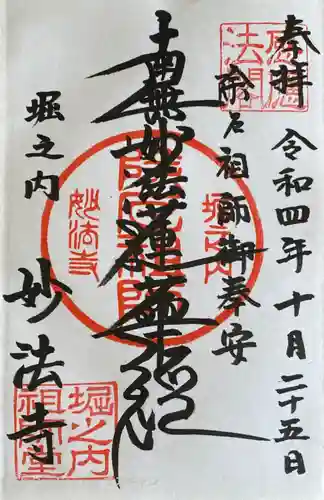 奉拝
令和四年十月二十五日
除厄祖師御奉安
南無妙法蓮華経
堀之内
妙法寺
堀之内
妙法寺
堀之内
祖師堂